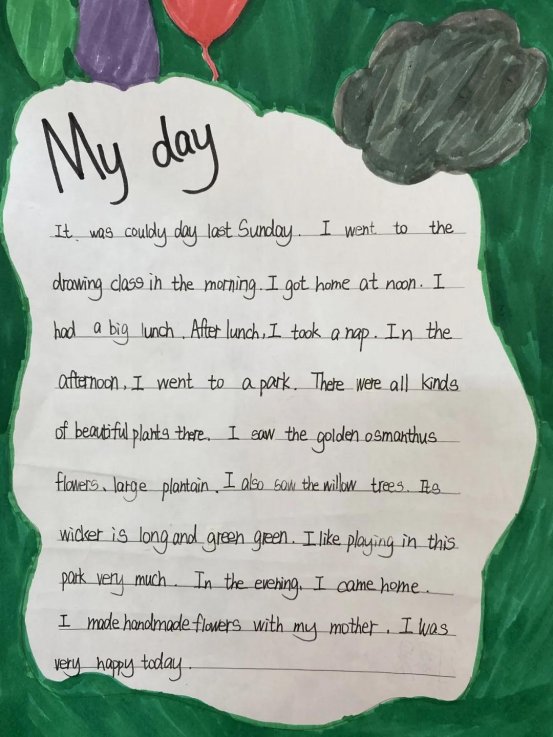 My day
It was couldy day last Sunday. I went to the
drawing class in the morning. I got home at noon. I
had a big lunch. After lunch, I took a nap. In the
afternoon, I went to a park. There were all kinds
of beautiful plants there. I saw the golden osmanthus
flowers、large plantain. I also saw the willow trees. Its
wicker is long and green green. I like playing in this
park very much. In the evening, I came home.
I made handmade flowers with my mother. I was
very happy today.